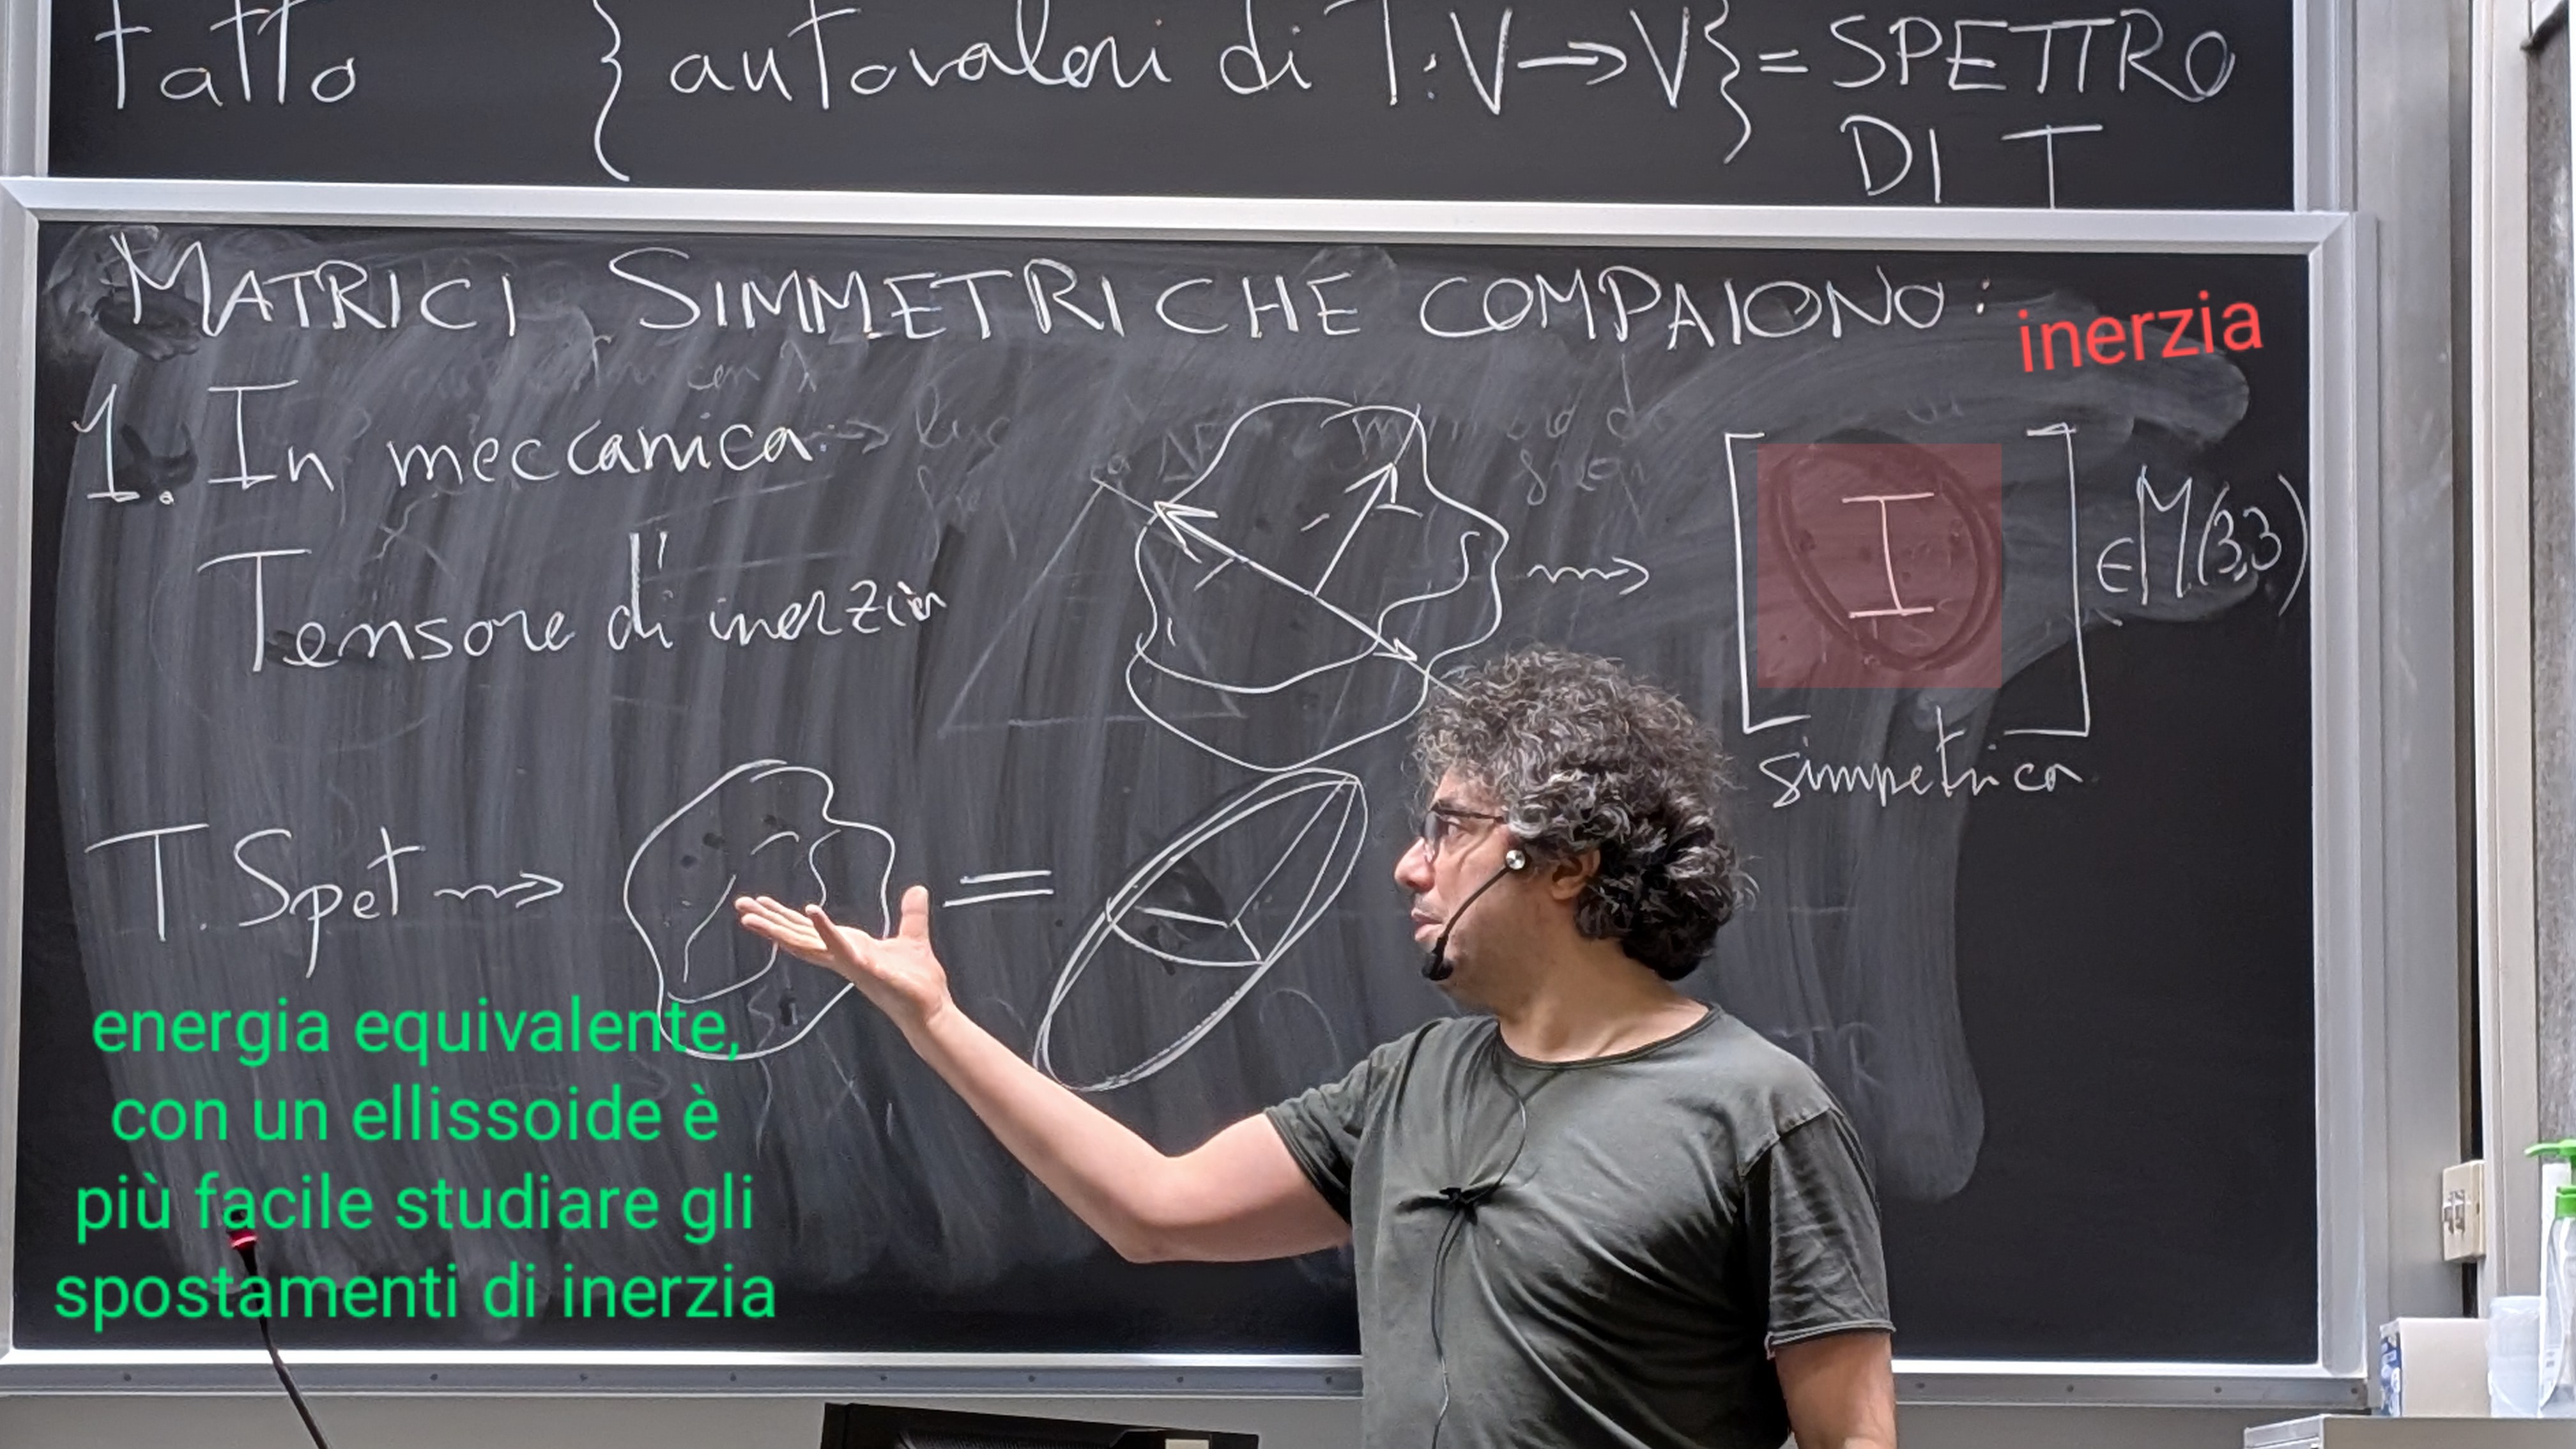 fatto { autovalori di T: V → V } = SPETTRO
DI T
MATRICI SIMMETRICHE COMPAIONO:
inerzia
1. In meccanica:
Tensore d'inerzia
[ I ] ∈ M(3,3)
simmetrica
T. Spet ⇝ =
energia equivalente,
con un ellissoide è
più facile studiare gli
spostamenti di inerzia